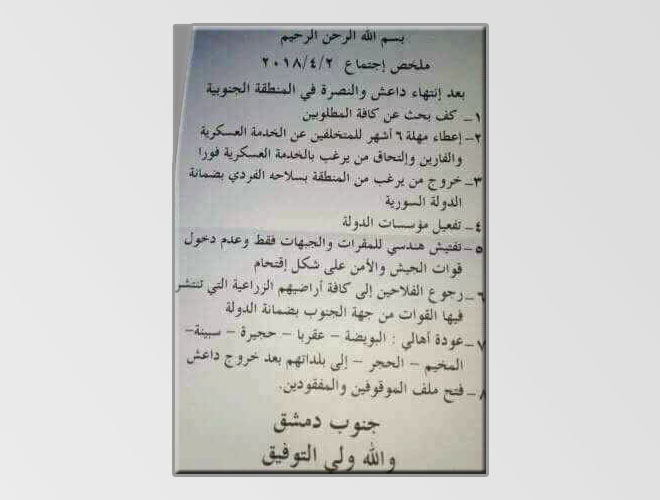 بسم الله الرحمن الرحيم
ملخص إجتماع ٢٠١٨/٤/٢
بعد إنتهاء داعش والنصرة في المنطقة الجنوبية
١ــ كف بحث عن كافة المطلوبين
٢ــ إعطاء مهلة ٦ أشهر للمتخلفين عن الخدمة العسكرية
والفارين وإلتحاق من يرغب بالخدمة العسكرية فورا
٣ــ خروج من يرغب من المنطقة بسلاحه الفردي بضمانة
الدولة السورية
٤ــ تفعيل مؤسسات الدولة
٥ــ تفتيش هندسي للمقرات والجبهات فقط وعدم دخول
قوات الجيش والأمن على شكل إقتحام
٦ــ رجوع الفلاحين إلى كافة أراضيهم الزراعية التي تنتشر
فيها القوات من جهة الجنوب بضمانة الدولة
٧ــ عودة أهالي : البويضة – عقربا – حجيرة – سبينة–
المخيم – الحجر – إلى بلداتهم بعد خروج داعش
٨ــ فتح ملف الموقوفين والمفقودين.
جنوب دمشق
والله ولي التوفيق